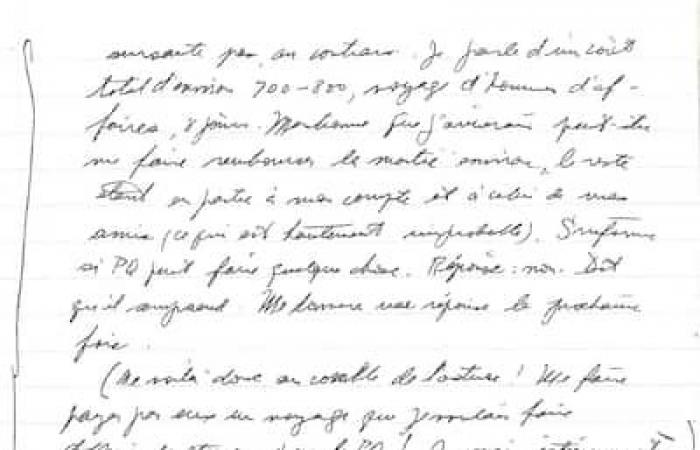 pas, au contraire. Je parle d'un coût
total d'environ 700-800, voyage d'hommes d'af-
faires, 8 jours. Mentionne que j'aimerais peut-être
me faire rembourser la moitié environ, le reste
étant en partie à mon compte et à celui de mes
amis (ce qui est hautement improbable). S'informe
si PQ peut faire quelque chose. Réponse : non. Dit
qu'il comprend. Me donnera une réponse la prochaine
fois.
(Me voilà donc au comble de l'astuce ! Me faire
payer par eux un voyage que je voulais faire